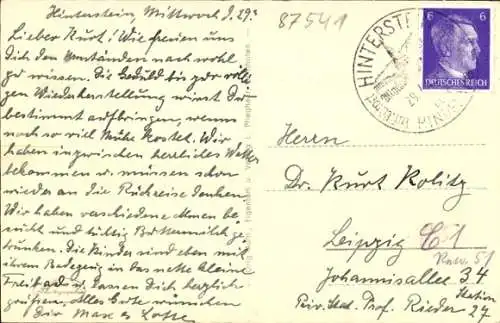 Hinterstein, Mittwoch 9. 29.
87541
Lieber Kurt! Wie freuen uns
Dich den Umständen nach wohl
zu wissen. Die Geduld bis zur völli-
gen Wiederherstellung wirst Du
bestimmt aufbringen, wenn
noch so viel Mühe kostet. Wir
haben inzwischen herrliches Wetter
bekommen u. müssen schon
wieder an die Rückreise denken
Wir haben verschiedene Almen be-
sucht und tüchtig Buttermilch ge-
trunken. Die Kinder sind eben mit
ihrem Badezeug in das nette kleine
Freibad u. lassen Dich herzlich
grüßen, Alles Gute wünschen
Dir Max u. Lotte
HINTERSTEIN
6 6
DEUTSCHES REICH
Herrn
Dr. Kurt Kolitz
Leipzig C1
Johannisallee 34
Priv. Prof. Rieder Station
27